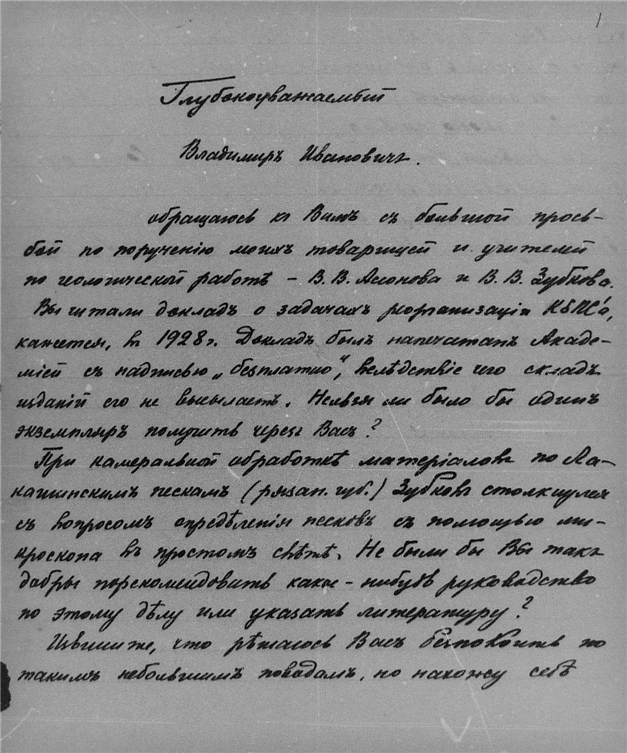 1
Глубокоуважаемый
Владимиръ Ивановичъ.
обращаюсь къ Вамъ съ большой прось-
бой по порученію моихъ товарищей и учителей
по геологической работѣ – В. В. Асонова и В. В. Зубкова.
Вы читали докладъ о задачахъ реорганизаціи КЕПС'а,
кажется, въ 1928 г. Докладъ былъ напечатанъ Акаде-
міей съ надписью „безплатно“, вслѣдствіе чего складъ
изданій его не высылаетъ. Нельзя ли было бы одинъ
экземпляръ получить черезъ Васъ?
При камеральной обработкѣ матеріаловъ по Ла-
кашинскимъ пескамъ (рязан. губ.) Зубковъ столкнулся
съ вопросомъ опредѣленія песковъ съ помощью ми-
кроскопа въ простомъ свѣтѣ. Не были бы Вы такъ
добры порекомендовать какое-нибудь руководство
по этому дѣлу или указать литературу?
Извините, что рѣшаюсь Васъ безпокоить по
такимъ небольшимъ поводамъ, но нахожу себѣ